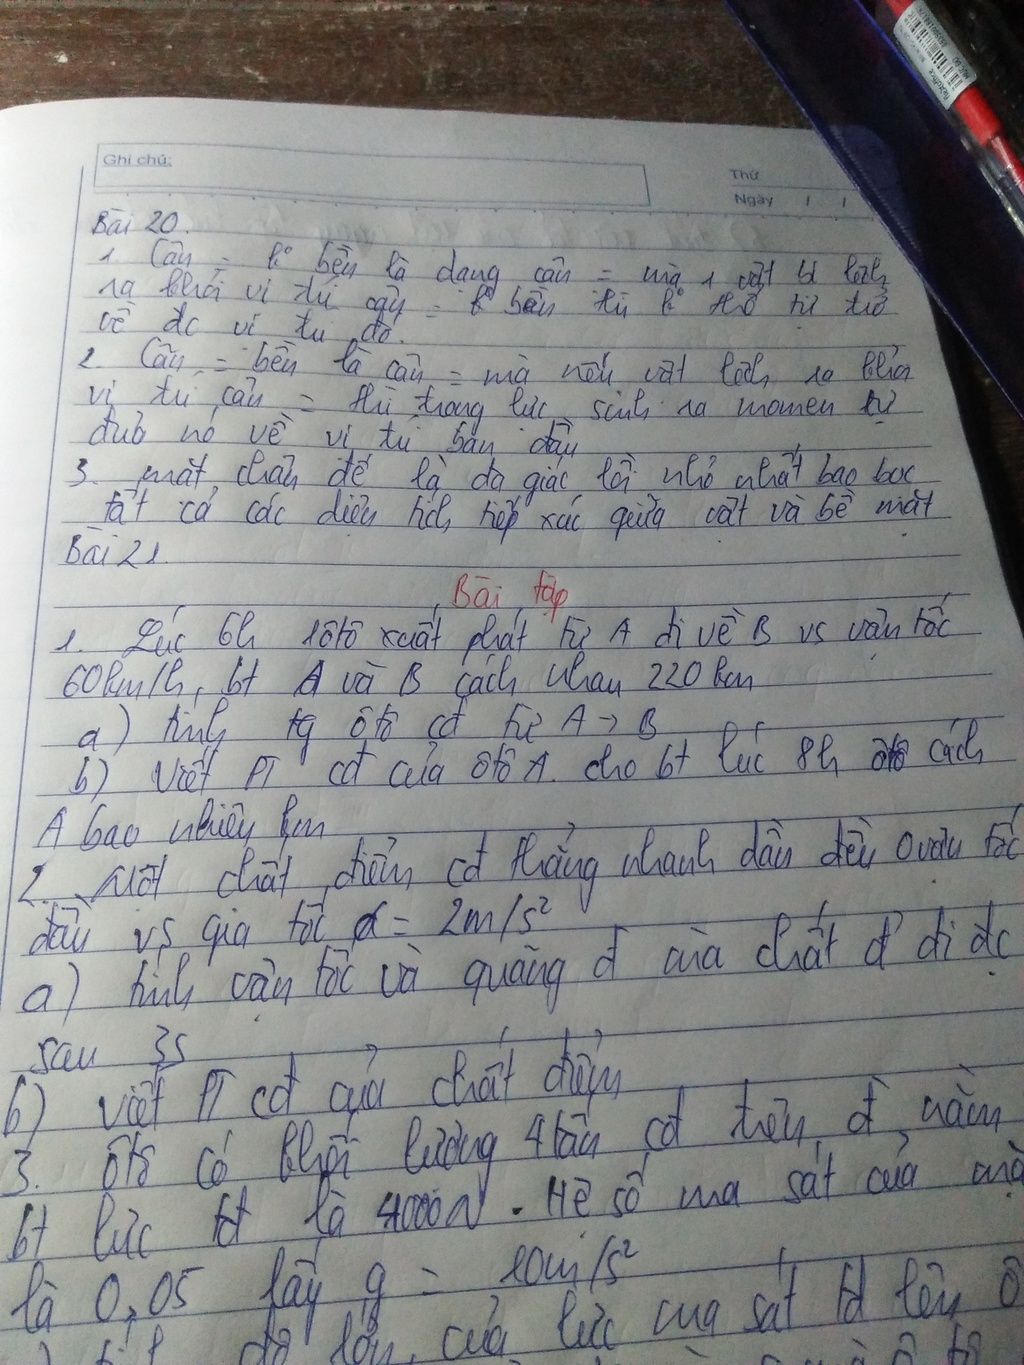 Ghi chú:
Thứ
Ngày / /
Bài 20.
1. Cân = k° bền là dạng cân = mà 1 vật bị lệch
ra khỏi vị trí cân = k° bền thì k° thể tự trở
về đc vị trí đó.
2. Cân = bền là cân = mà nếu vật lệch ra khỏi
vị trí cân = thì trọng lực sinh ra momen
đưa nó về vị trí ban đầu
3. mặt chân đế là đa giác lồi nhỏ nhất bao bọc
tất cả các diện tích tiếp xúc giữa vật và bề mặt
Bài 21.
Bài tập
1. Lúc 6h 1ôtô xuất phát từ A đi về B vs vận tốc
60km/h, bt A và B cách nhau 220 km
a) tính tg ôtô cđ từ A → B
b) Viết PT cđ của ôtô A. cho bt lúc 8h ôtô cách
A bao nhiêu km
2. Một chất điểm cđ thẳng nhanh dần đều 0 vận tốc
đầu vs gia tốc a = 2m/s²
a) tính vận tốc và quãng đ của chất đ' đi đc
sau 3s
b) viết PT cđ của chất điểm
3. ôtô có khối lượng 4 tấn cđ trên đ nằm
bt lực tđ là 4000N. Hệ số ma sát của
là 0,05 lấy g = 10m/s²
độ lớn của lực ma sát tđ lên ô